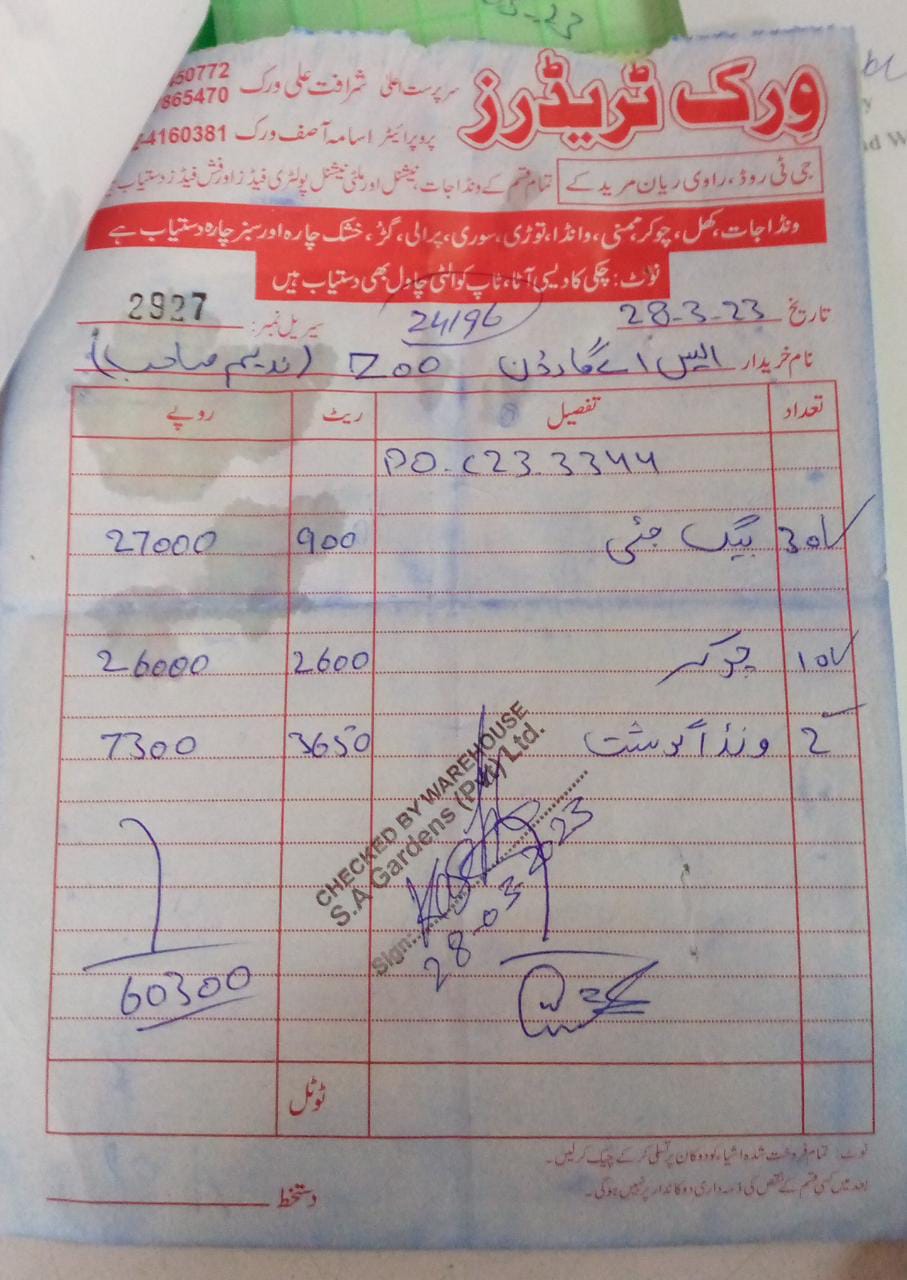 05-23
ورک ٹریڈرز
سرپرست اعلیٰ شرافت علی ورک 50772
865470
پروپرائیٹر اسامہ آصف ورک 4160381
جی ٹی روڈ، راوی ریان مرید کے
تمام قسم کے ونڈا جات، نیشنل اور ملٹی نیشنل پولٹری فیڈز اور فش فیڈز دستیاب ہیں
ونڈا جات، کھل، چوکر، ممنی، وانڈا، توڑی، سوری، پرالی، گڑ، خشک چارہ اور سبز چارہ دستیاب ہے
نوٹ: چکی کا دیسی آٹا، ٹاپ کوالٹی چاول بھی دستیاب ہیں
تاریخ 28-3-23 24196 سیریل نمبر: 2927
نام خریدار ایس اے گارڈن ZOO (ندیم صاحب)
تعداد تفصیل ریٹ روپے
PO-C23-3344
30 بیگ جئی 900 27000
10 چوکر 2600 26000
2 ونڈا گوشت 3650 7300
CHECKED BY WAREHOUSE
S.A Gardens (Pvt) Ltd.
Sign:
28-03-2023
60300
ٹوٹل
نوٹ: تمام فروخت شدہ اشیاء کو دوکان پر تسلی کر کے چیک کر لیں۔
بعد میں کسی قسم کے نقص کی ذمہ داری دوکاندار پر نہیں ہو گی۔
دستخط